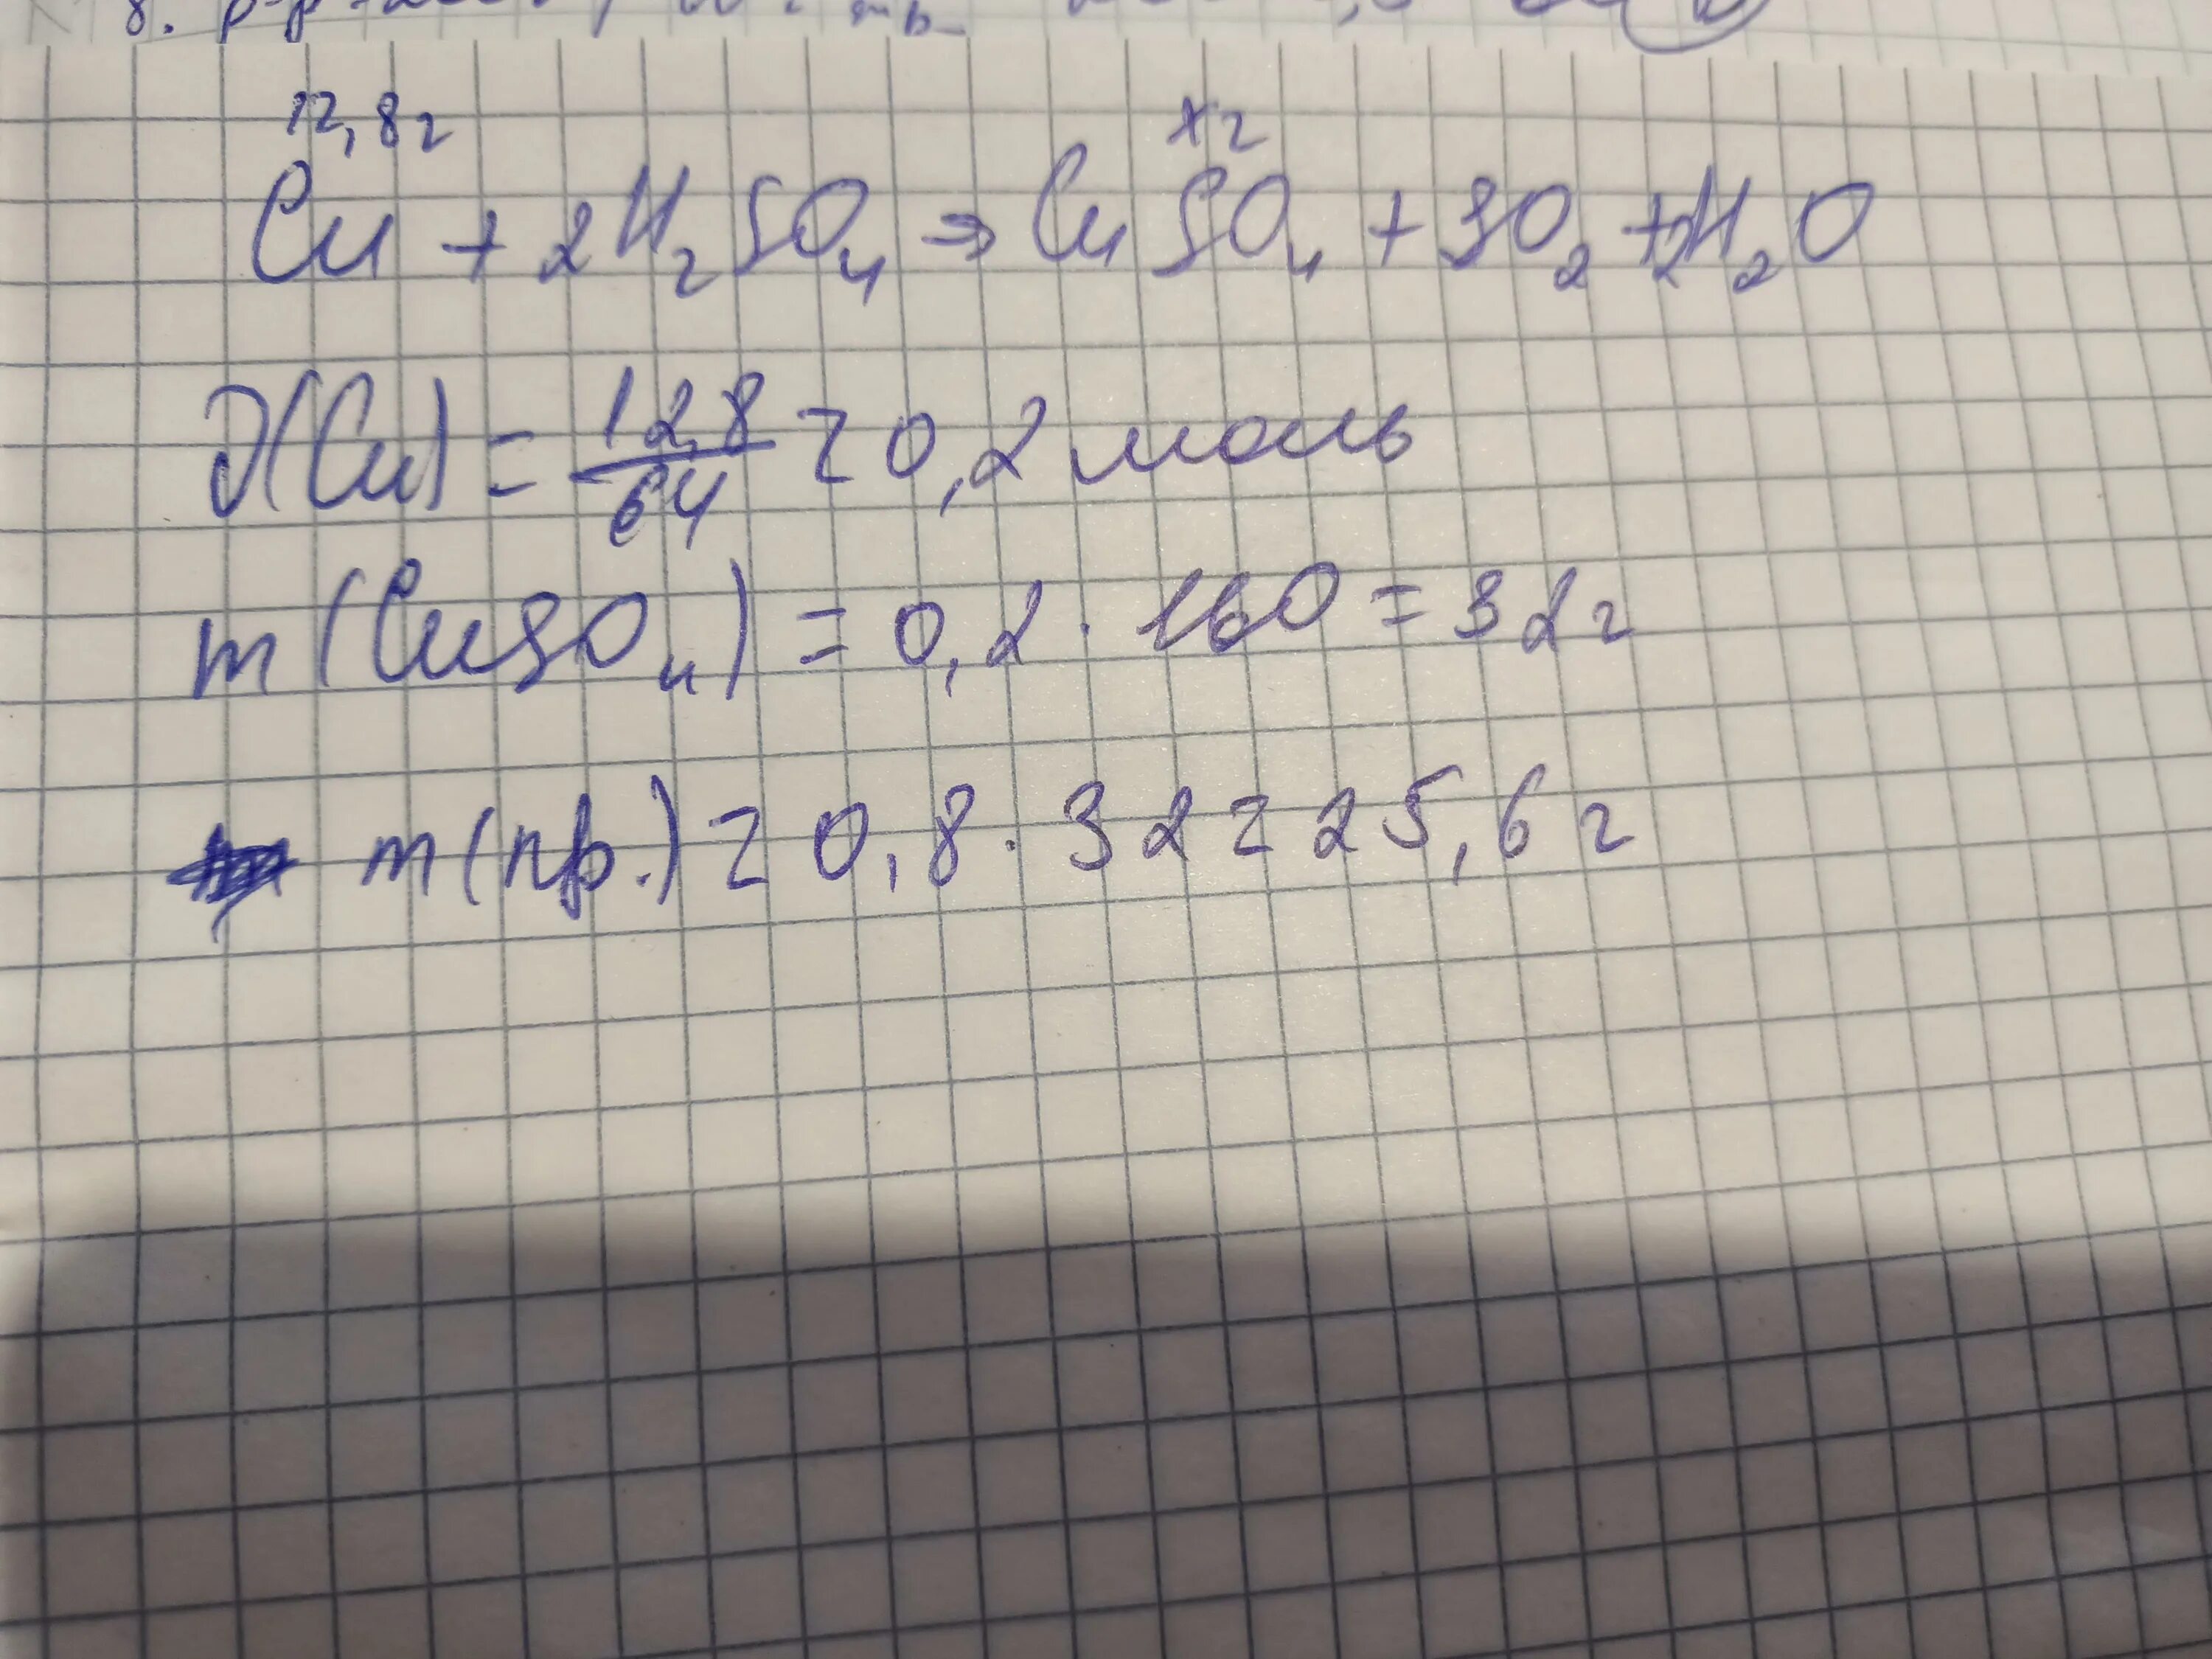 8.
12,8г
xг
Cu + 2H₂SO₄ → CuSO₄ + SO₂ + 2H₂O
ν(Cu) = 12,8/64 = 0,2 моль
m(CuSO₄) = 0,2 · 160 = 32г
m(пр.) = 0,8 · 32 = 25,6г